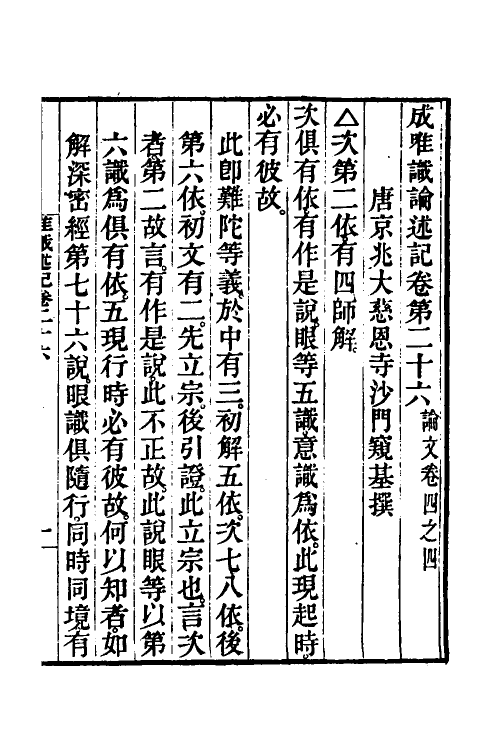 成唯識論述記卷第二十六論文卷四之四
唐京兆大慈恩寺沙門窺基撰
△次第二依。有四師解。
次俱有依。有作是說。眼等五識。意識爲依。此現起時。
必有彼故。
此卽難陀等義。於中有三。初解五依。次七八依。後
第六依。初文有二。先立宗。後引證。此立宗也。言次
者。第二故言。有作是說。此不正故。此說眼等以第
六識爲俱有依。五現行時必有彼故。何以知者。如
解深密經第七十六說。眼識俱隨行。同時同境。有
唯識述記卷二十六 一